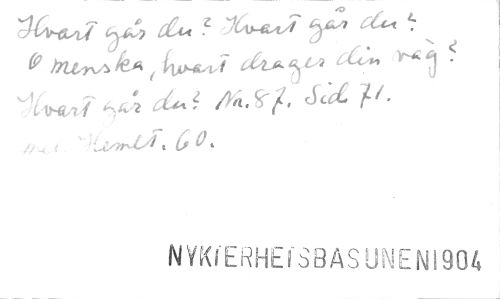 Hvart går du? Hvart går du?
O menska, hvart drager din väg?
Hvart går du? Nr. 87. Sid. 71.
Hemlt. 60.
NYKTERHETSBASUNEN1904